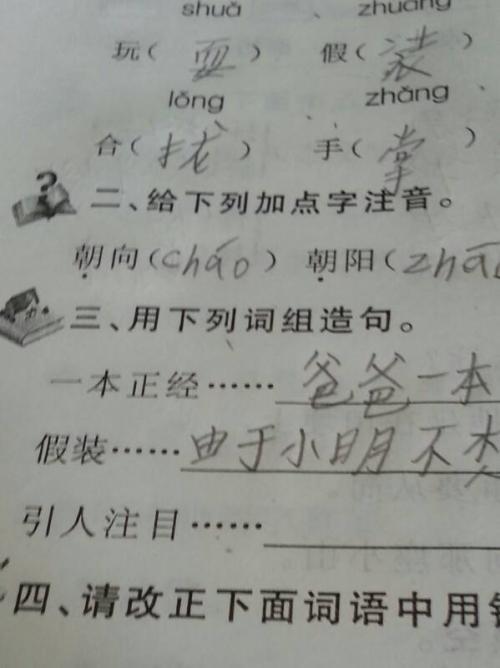 shuǎ zhuāng
玩（耍） 假（装）
lǒng zhǎng
合（拢） 手（掌）
二、给下列加点字注音。
朝向（cháo） 朝阳（zhāo
三、用下列词组造句。
一本正经……爸爸一本
假装……由于小明不想
引人注目……
四、请改正下面词语中用错